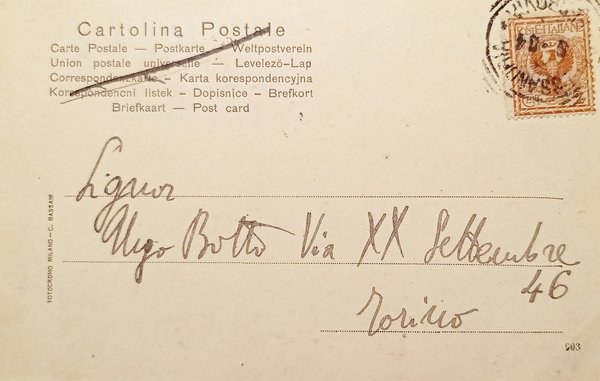 Cartolina Postale
Carte Postale — Postkarte — Weltpostverein
Union postale universelle — Levelező-Lap
Correspondenzkarte — Karta korespondencyjna
Korespondencni listek - Dopisnice - Brefkort
Briefkaart — Post card
POSTE ITALIANE
Signor
Ugo Botto Via XX Settembre
46
Torino
FOTOCROMO MILANO — C. BASSANI
903